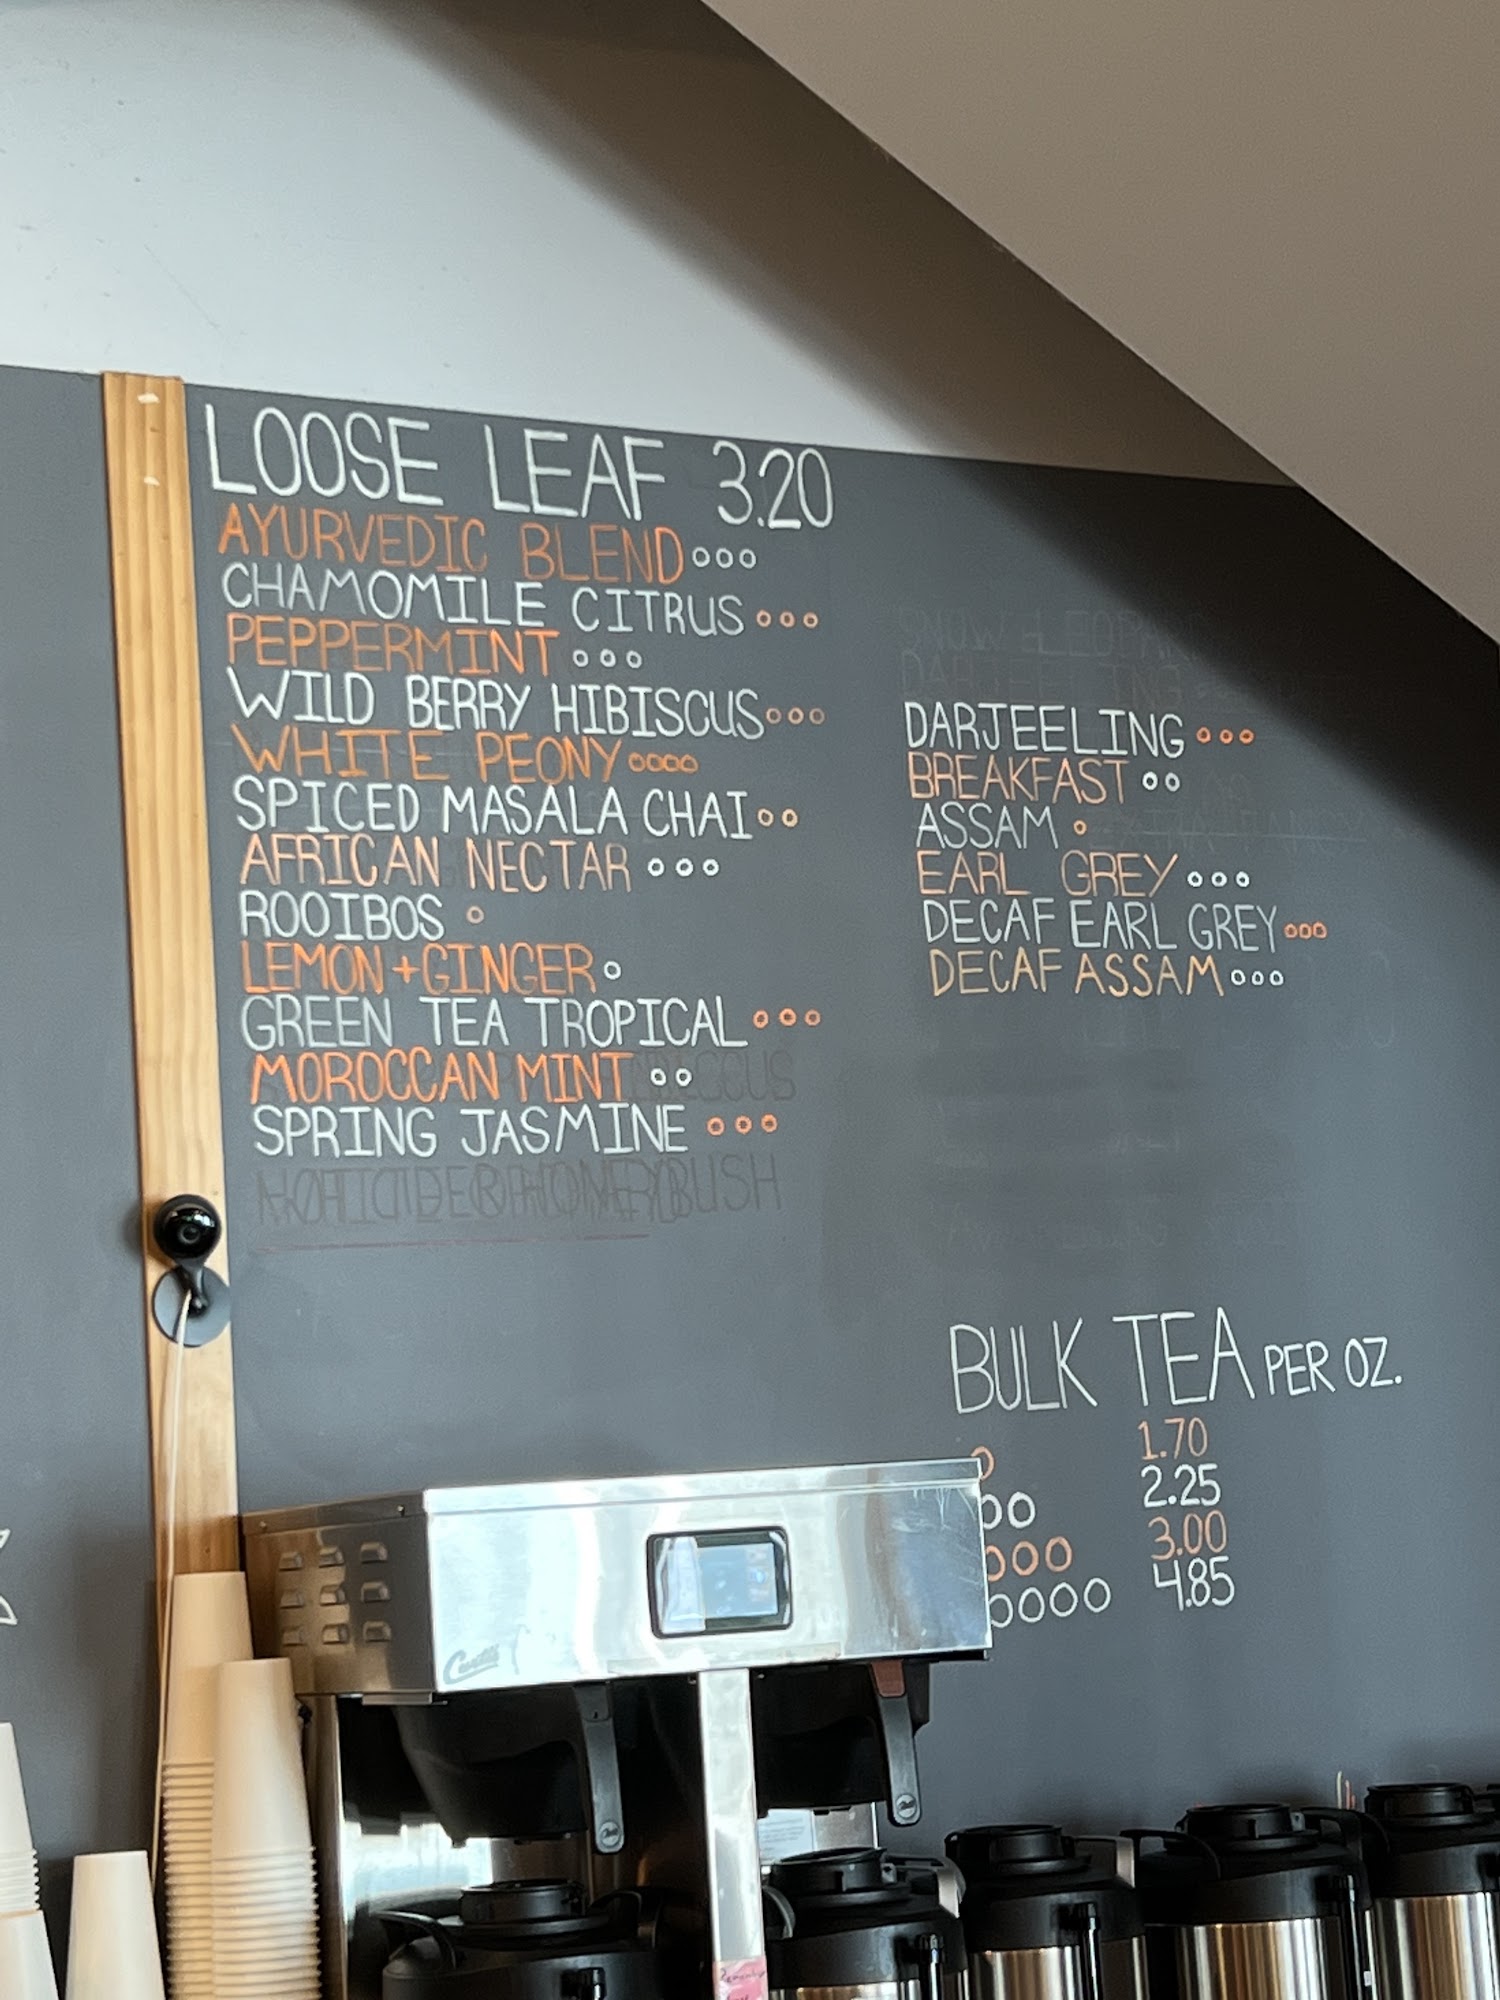 LOOSE LEAF 3.20
AYURVEDIC BLEND ooo
CHAMOMILE CITRUS ooo
PEPPERMINT ooo
WILD BERRY HIBISCUS ooo
WHITE PEONY oooo
SPICED MASALA CHAI oo
AFRICAN NECTAR ooo
ROOIBOS o
LEMON + GINGER o
GREEN TEA TROPICAL ooo
MOROCCAN MINT oo
SPRING JASMINE ooo
DARJEELING ooo
BREAKFAST oo
ASSAM o
EARL GREY ooo
DECAF EARL GREY ooo
DECAF ASSAM ooo
BULK TEA PER OZ.
o 1.70
oo 2.25
ooo 3.00
oooo 4.85
Curtis